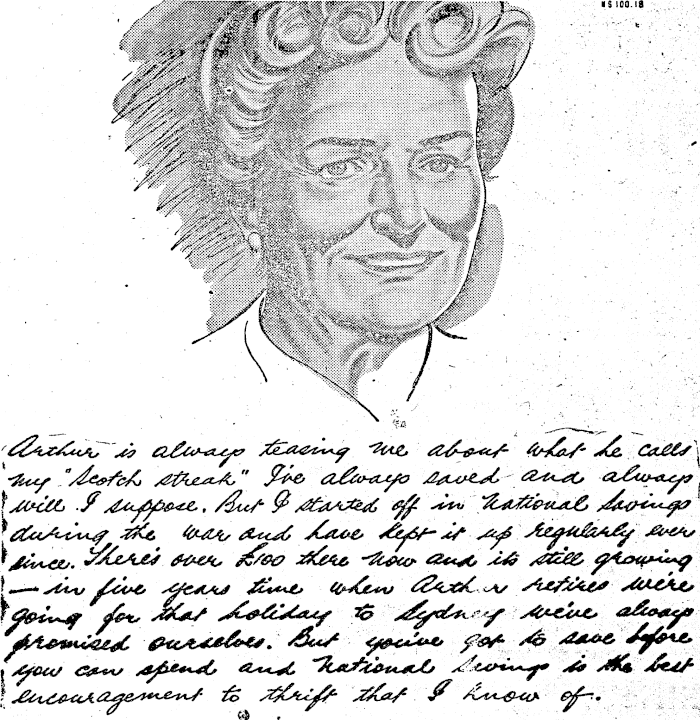 NS 100.18
Arthur is always teasing me about what he calls
my "Scotch streak" I've always saved and always
will I suppose. But I started off in National Savings
during the war and have kept it up regularly ever
since. There's over £100 there now and its still growing
— in five years time when Arthur retires we're
going for that holiday to Sydney we've always
promised ourselves. But you've got to save before
you can spend and National Savings is the best
encouragement to thrift that I know of.